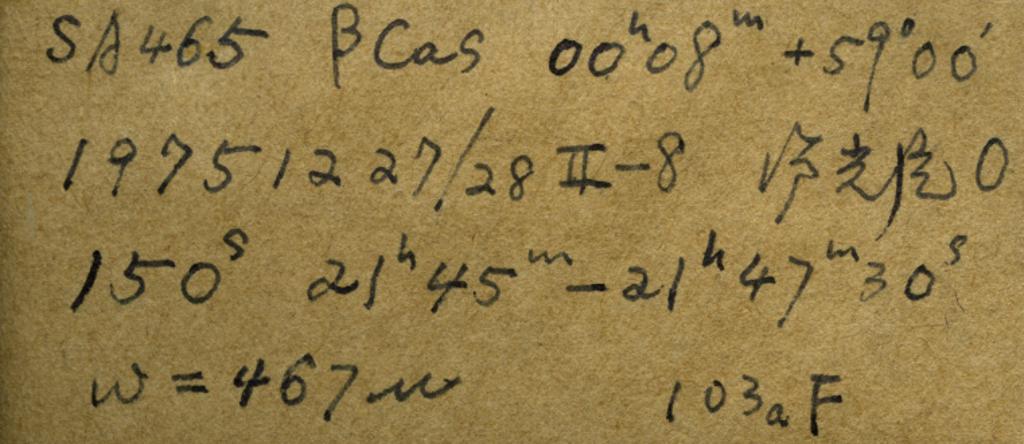 SA465 βCas 00ʰ08ᵐ +59°00′
1975 12 27/28 II-8 序光片 0
150ˢ 21ʰ45ᵐ-21ʰ47ᵐ30ˢ
w=467μ 103aF